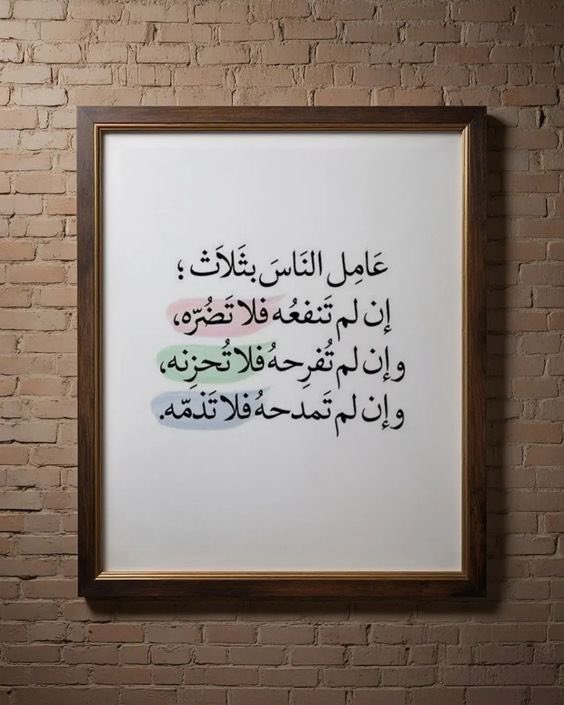 عَامِل النَاسَ بثَلاَث ؛
إن لم تَنفعُه فلا تَضُرّه،
وإن لم تُفرِحهُ فلا تُحزِنه،
وإن لم تَمدحهُ فلا تَذمّه.